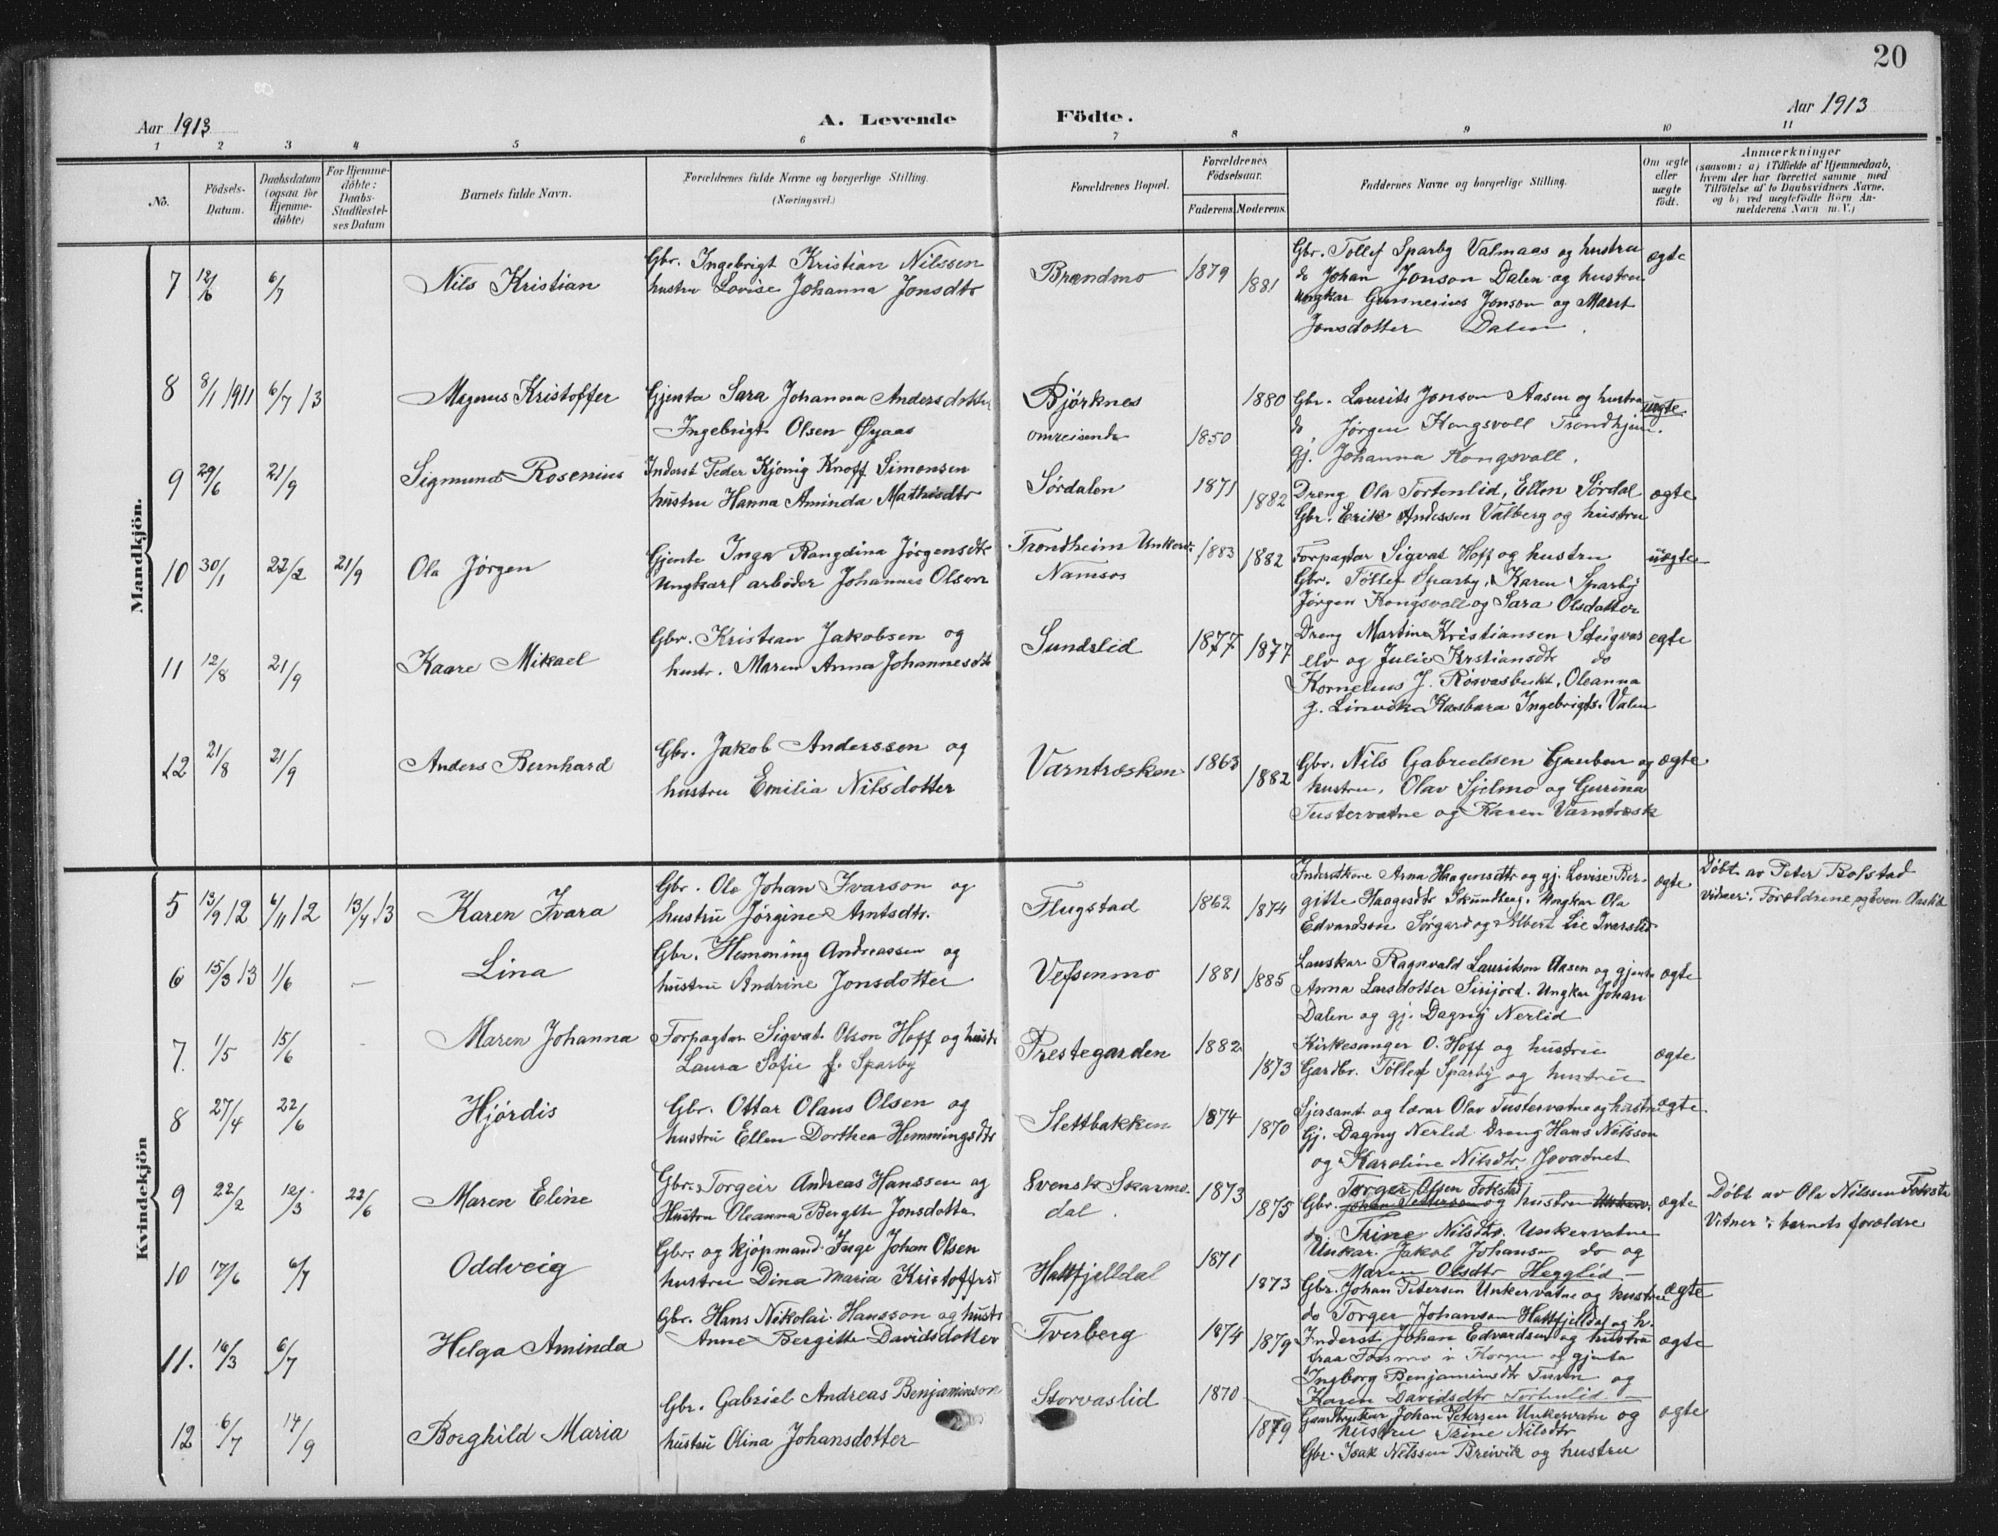 20
Aar 1913
A. Levende Födte.
Aar 1913
1 2 3 4 5 6 7 8 9 10 11
No.
Födsels-Datum.
Daabsdatum (ogsaa for Hjemme-döbte)
For Hjemme-döbte: Daabs-Stadfæstel-ses Datum
Barnets fulde Navn.
Forældrenes fulde Navne og borgerlige Stilling.
(Næringsvei.)
Forældrenes Bopæl.
Forældrenes Födselsaar.
Faderens. Moderens.
Faddernes Navne og borgerlige Stilling.
Om ægte eller uægte födt.
Anmærkninger
(saasom: a) i Tilfælde af Hjemmedaab,
hvem der har forrettet samme, med
Tilföielse af to Daabsvidners Navne.
og b) ved uægtefödte Börn An-
melderens Navn m. V.)
Mandkjön.
7 12/6 6/7 Nils Kristian
Gbr. Ingebrigt Kristian Nilssen
hustru Lovise Johanna Jonsdtr
Brændmo 1879 1881
Gbr. Tollef Sparby Valmaas og hustru
do Johan Jonson Dalen og hustru
ungkar Gunnerius Jonson og Marit
Jonsdotter Dalen.
ægte
8 8/1 1911 6/7 13 Magnus Kristoffer
Gjenta Sara Johanna Andersdotter
Ingebrigt Olsen Øyaas
Bjørknes 1880
omreisende 1850
Gbr. Laurits Jonson Aasen og hustru
do Jørgen Kongsvoll Trondhjem.
Gj. Johanna Kongsvoll.
uægte
9 29/6 21/9 Sigmund Rosenius
Inderst Peder Kjönig Knoff Simonsen
hustru Hanna Aminda Mathisdtr
Sørdalen 1871 1882
Dreng Ola Tortenlid, Ellen Sørdal
Gbr. Erik Anderssen Valberg og hustru
ægte
10 30/1 22/2 21/9 Ola Jørgen
Gjente Inga Rangdina Jørgensdtr
Ungkarl arbeder Johannes Olsen
Trondheim Unkerv.
Namsos 1883 1882
Forpagtar Sigvat Hoff og hustru
Gbr. Tøllef Sparby, Karen Sparby
Jørgen Kongsvoll og Sara Olsdotter
uægte
11 12/8 21/9 Kaare Mikael
Gbr. Kristian Jakobsen og
hustr. Maren Anna Johannesdtr
Sundslid 1877 1877
Dreng Martin Kristiansen Stuigvas
elv og Julie Kristiansdtr do
Kornelius J. Røsvasbukt, Oleanna
J. Linvik, Kasbara Ingebrigts. Valen
ægte
12 21/8 21/9 Anders Bernhard
Gbr. Jakob Anderssen og
hustru Emilia Nilsdotter
Varntræsken 1863 1882
Gbr. Nils Gabrielsen Gruben og
hustru, Olav Sjelmo og Gurina
Tustervatne og Karen Varntræsk
ægte
Kvindekjön
5 13/9 12 6/11 12 13/4 13 Karen Ivara
Gbr. Ole Johan Ivarson og
hustru Jørgine Arntsdtr.
Flugstad 1862 1874
Arna Haagensdtr og gj. Lovise Ber-
gitte Haagesdtr Skundberg. Ungkar Ola
Edvardson Sørgard og Albert Lie Ivarslid
ægte
Døbt av Peter Rolstad
vidner: Forældrene og Even Aaslid
6 15/3 13 1/6 — Lina
Gbr. Hemming Andreassen og
hustru Andrine Jonsdotter
Vefsenmo 1881 1885
Lauskar Ragnvald Lauritson Aasen og gjenta
Anna Larsdotter Sirijord. Ungkar Johan
Dalen og gj. Dagny Nerlid
ægte
7. 1/5 15/6 Maren Johanna
Forpagtar Sigvat Olson Hoff og hustr
Laura Sofie f. Sparby
Prestegarden 1882 1873
Kirkesanger O. Hoff og hustru
Gardbr. Tøllef Sparby og hustru
ægte
8 27/4 22/6 Hjørdis
Gbr. Ottar Olaus Olsen og
hustru Ellen Dorthea Hemmingsdtr
Slettbakken 1874 1870
Sjersant og lærar Olav Tustervatne og hustru
Gj. Dagny Nerlid Dreng Hans Nilsson
og Karoline Nilsdtr. Jovatnet
ægte
9 22/2 12/3 22/6 Maren Eline
Gbr. Torgeir Andreas Hanssen og
Hustru Oleanna Bergitte Jonsdotter
Svensk Skarmo-
dal. 1873 1875
Torger Olsen Fokstad
Gbr. Johan Petterson og hustru Unkerv.
do. Trine Nilsdtr. Unkervatne
Unkar. Jakob Johansen do og
Maren Olsdtr Hegglid —
ægte
Døbt av Ola Nilssen
Vitner: barnets forældre
10 17/6 6/7 Oddveig
Gbr. og kjøpmand Inge Johan Olsen
hustru Dina Maria Kristoffersd
Hattfjelldal 1871 1873
Gbr. Johan Petersen Unkervatne og hustru
do Torger Johansen Hattfjelldal og h.
ægte
11. 16/3 6/7 Helga Aminda
Gbr. Hans Nikolai Hansson og hustr
Anne Bergitte Davidsdotter
Tverberg 1874 1879
Inderst Johan Edvardsen og hustru
fraa Fosmo i Korgen og gjenta
Ingborg Benjaminsdtr Tuven og
Karen Davidsdtr Tortenlid —
ægte
12 6/7 14/9 Borghild Maria
Gbr. Gabriel Andreas Benjaminson
hustru Olina Johansdotter
Storvaslid 1870 1879
Gaardbrukar Johan Petersen Unkervatn og
hustru Trine Nilsdtr
Gbr. Isak Nilssen Breivik og hustru
ægte